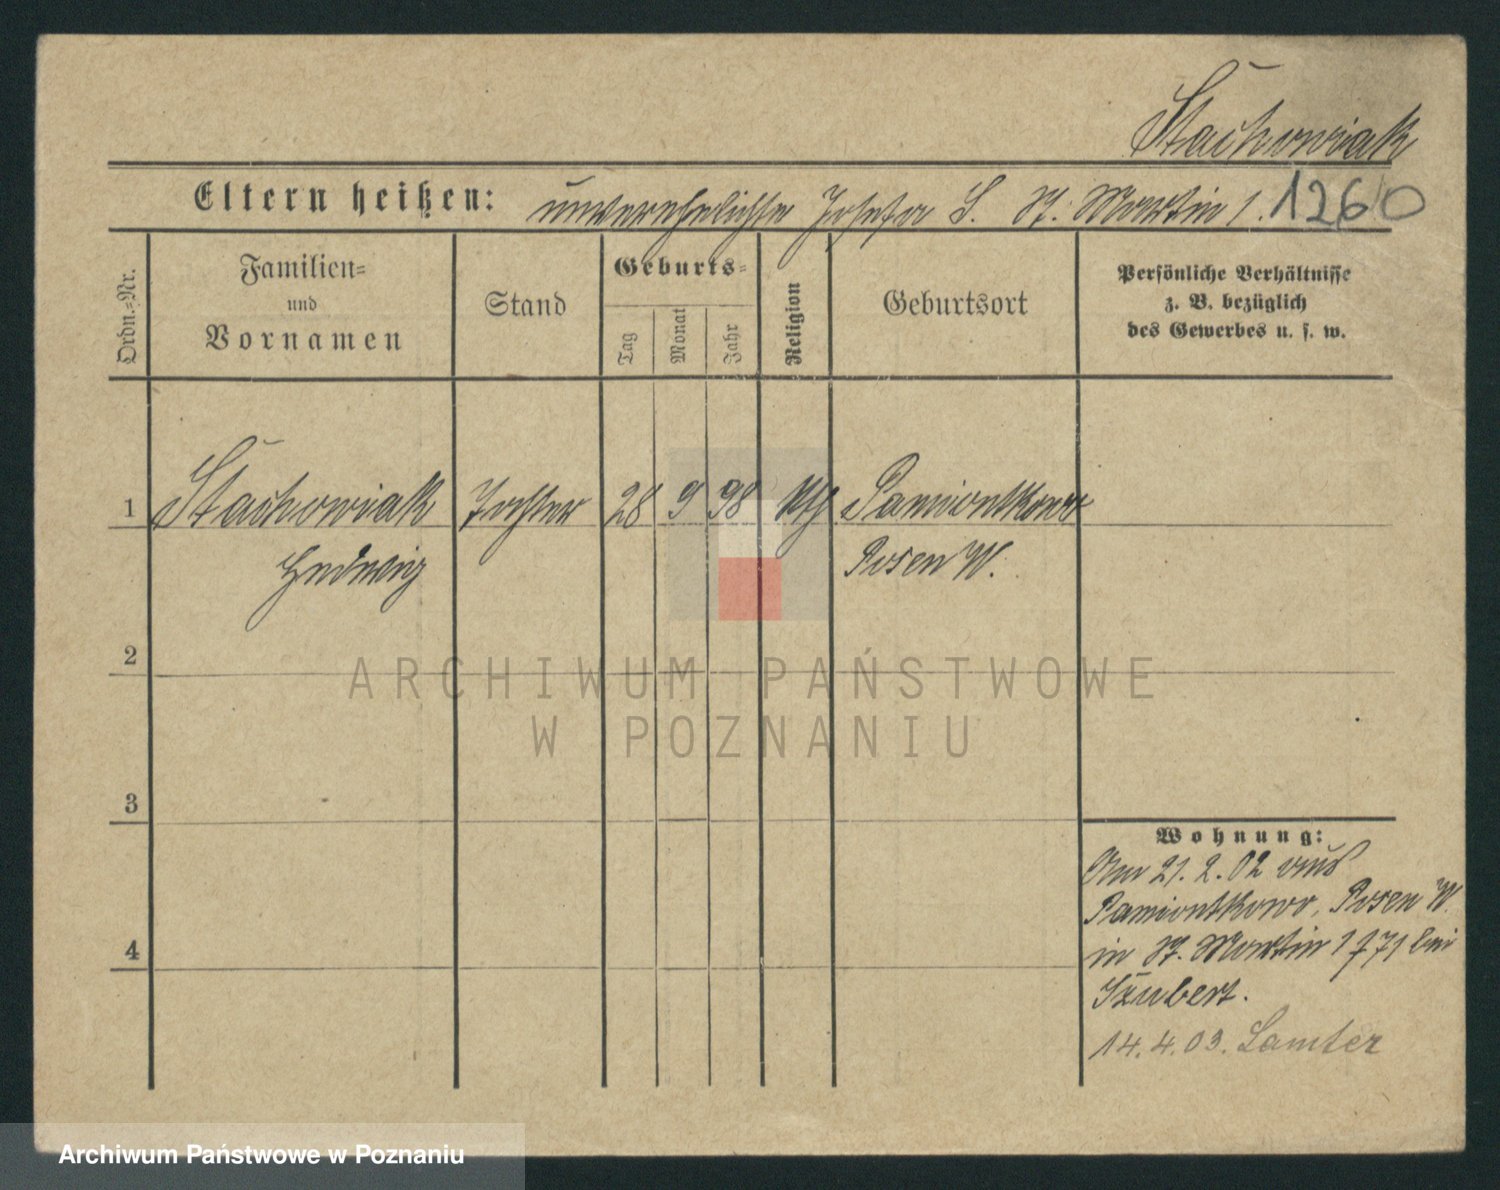 Stachowiak
Eltern heißen: unverehelichte Josefa S. St. Martin 1. 1260
Ordn.=Nr.
Familien=
und
Vornamen
Stand
Geburts=
Tag
Monat
Jahr
Religion
Geburtsort
Persönliche Verhältnisse
z. B. bezüglich
des Gewerbes u. s. w.
1 Stachowiak Tochter 28 9 98 kth Pamiontkowo
Hedwig Posen W.
2
ARCHIWUM PAŃSTWOWE
W POZNANIU
3
4
Wohnung:
Am 21. 2. 02 aus
Pamiontkowo, Posen W.
in St. Martin 1 f 71 bei
14. 4. 03. Samter
Archiwum Państwowe w Poznaniu